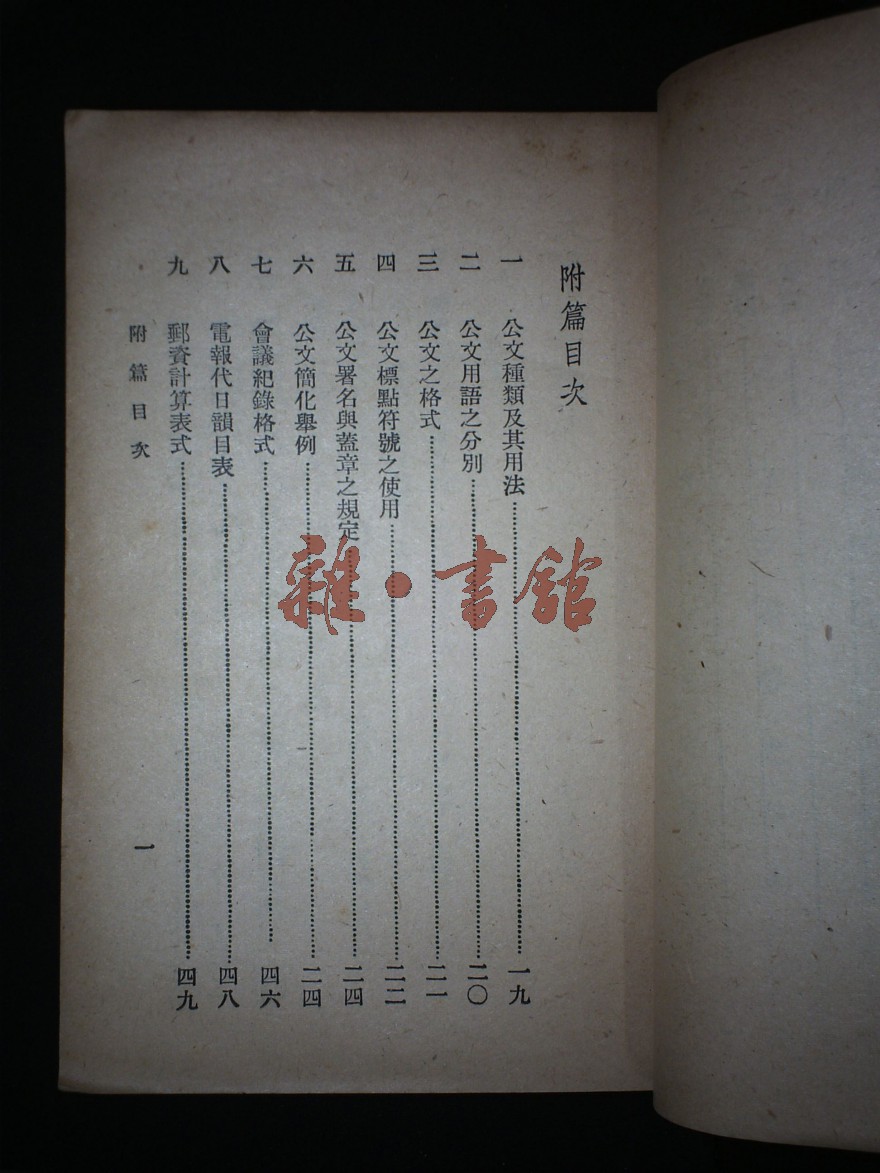 附篇目次
一 公文種類及其用法……一九
二 公文用語之分別……二〇
三 公文之格式……二一
四 公文標點符號之使用……二二
五 公文署名與蓋章之規定……二四
六 公文簡化舉例……二四
七 會議紀錄格式……四六
八 電報代日韻目表……四八
九 郵資計算表式……四九
附篇目次 一
雜·書館